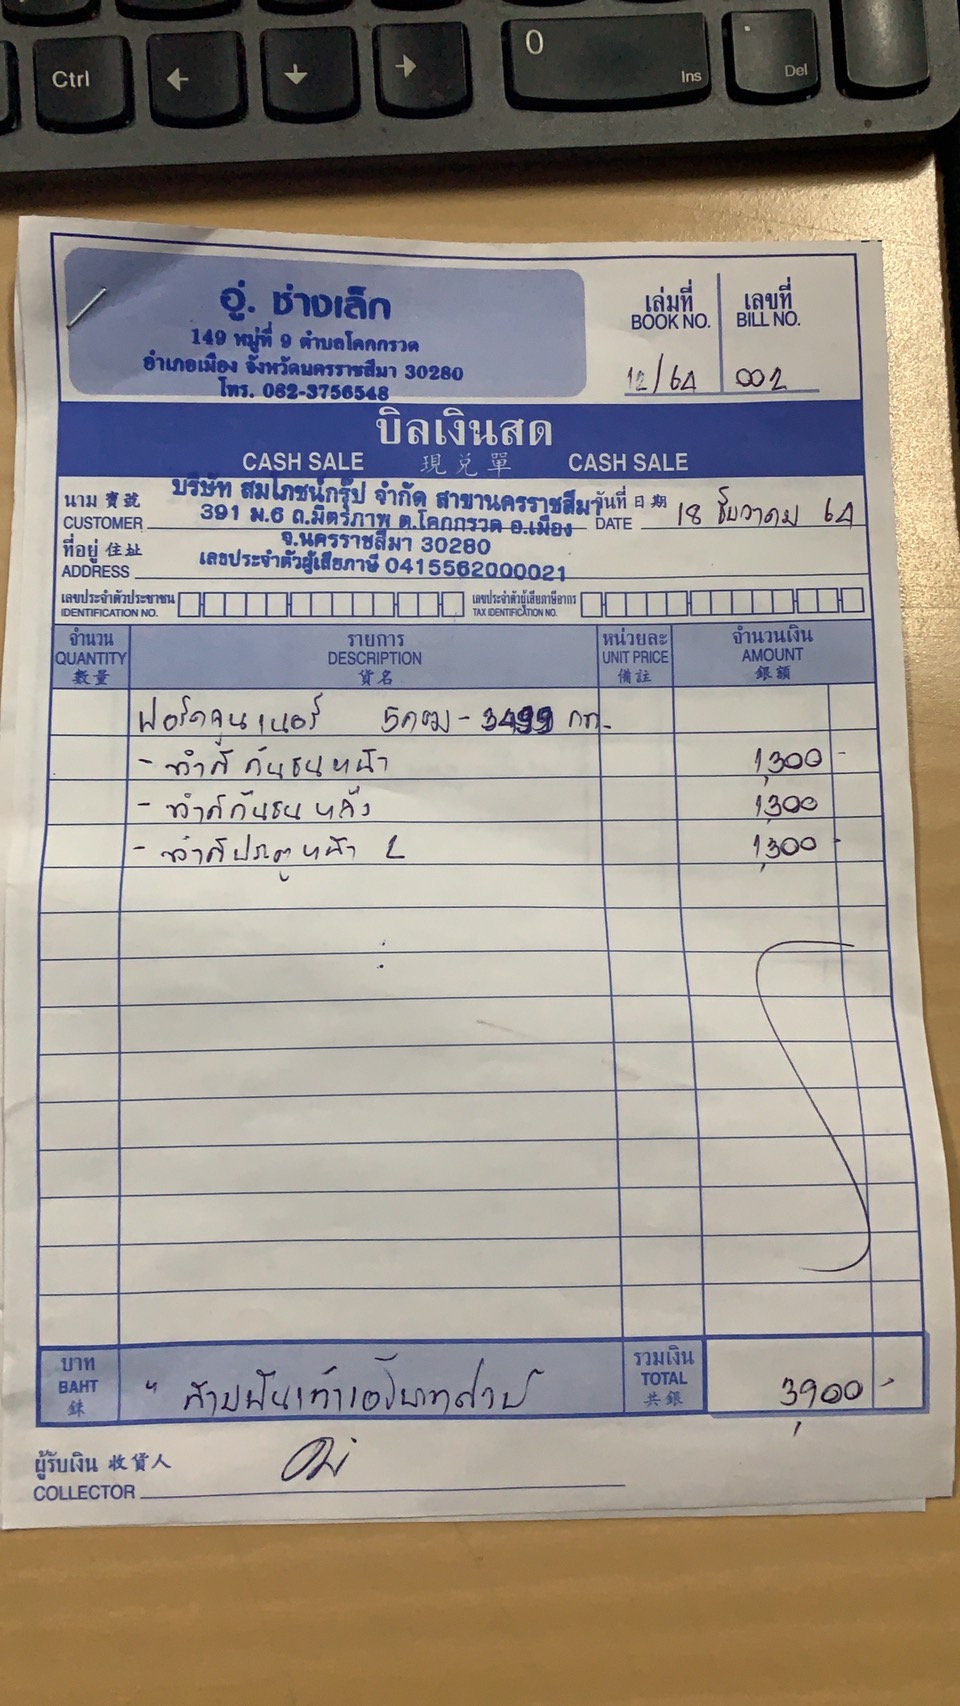 Ctrl
0
Ins
.
Del
อู่. ช่างเล็ก
149 หมู่ที่ 9 ตำบลโคกกรวด
อำเภอเมือง จังหวัดนครราชสีมา 30280
โทร. 082-3756548
เล่มที่ เลขที่
BOOK NO. BILL NO.
12/64 002
บิลเงินสด
CASH SALE 現兑單 CASH SALE
นาม 寶號 บริษัท สมโภชน์กรุ๊ป จำกัด สาขานครราชสีมา วันที่ 日期
CUSTOMER 391 ม.6 ถ.มิตรภาพ ต.โคกกรวด อ.เมือง DATE 18 ธันวาคม 64
ที่อยู่ 住址 จ.นครราชสีมา 30280
ADDRESS เลขประจำตัวผู้เสียภาษี 0415562000021
เลขประจำตัวประชาชน เลขประจำตัวผู้เสียภาษีอากร
IDENTIFICATION NO. TAX IDENTIFICATION NO.
จำนวน รายการ หน่วยละ จำนวนเงิน
QUANTITY DESCRIPTION UNIT PRICE AMOUNT
數量 貨名 備註 銀額
ฟอร์จูนเนอร์ 5กฌ - 3499 กท.
- ทำสี กันชนหน้า 1,300 -
- ทำสีกันชน หลัง 1,300
- ทำสีประตูหน้า L 1,300 -
บาท รวมเงิน
BAHT " สามพันเก้าร้อยบาทถ้วน TOTAL 3,900 -
銖 共銀
ผู้รับเงิน 收貨人
COLLECTOR